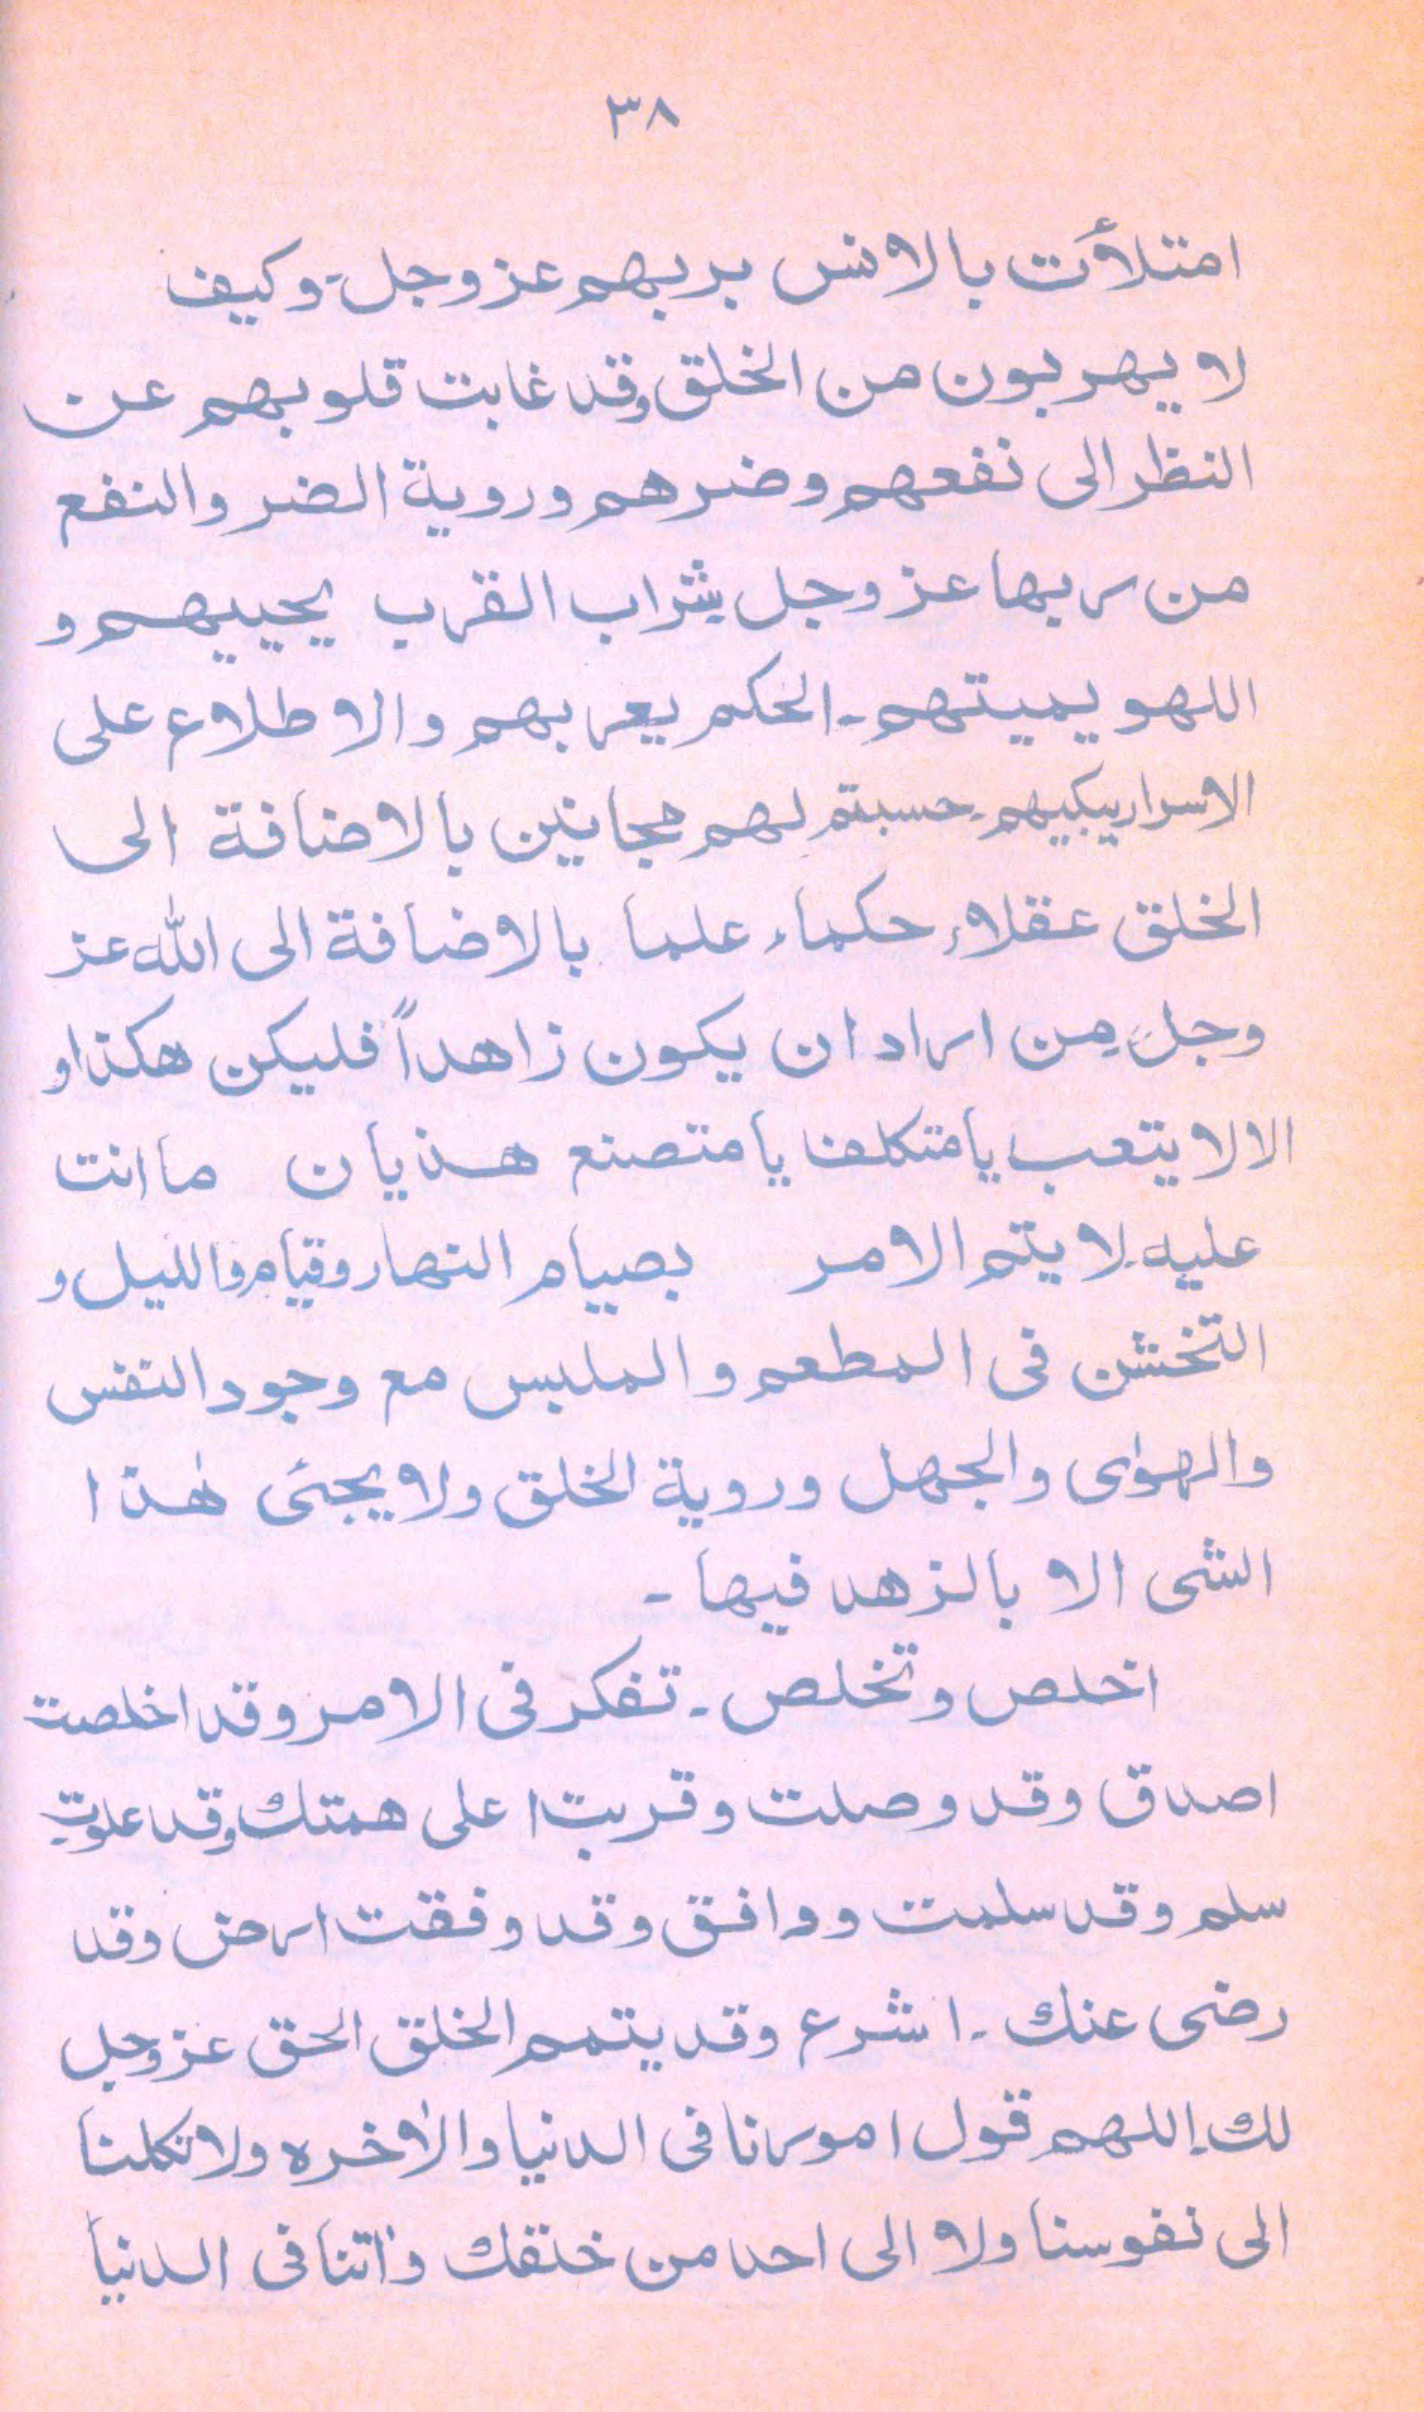 ٣٨
امتلأت بالانس بربهم عزوجل۔ وكيف
لا يهربون من الخلق وقد غابت قلوبهم عن
النظر الى نفعهم وضرهم وروية الضر والنفع
من ربها عزوجل بشراب القرب يحييهم و
اللهو يميتهم۔ الحكم يعربهم والاطلاع على
الاسرار يبكيهم۔ حسبتم لهم مجانين بالاضافة الى
الخلق عقلاء، حكماء، علما بالاضافة الى الله عز
وجل۔ من اراد ان يكون زاهداً فليكن هكذا و
الا لا يتعب يا متكلفا يا متصنع هذيان ما انت
عليه۔ لا يتم الامر بصيام النهار وقيام والليل و
التخشن فى المطعم والملبس مع وجود النفس
والهوٰى والجهل وروية الخلق ولا يجئى هٰذا
الشى الا بالزهد فيها۔
اخلص وتخلص۔ تفكر فى الامر وقد اخلصت
اصدق وقد وصلت وقربت اعلى همتك وقد علوت
سلم وقد سلمت ووافق وقد وفقت ارض وقد
رضى عنك۔ اشرع وقد يتمم الخلق الحق عزوجل
لك۔ اللهم قول امورنا فى الدنيا والاٰخره ولا تكلنا
الى نفوسنا ولا الى احد من خلقك واٰتنا فى الدنيا